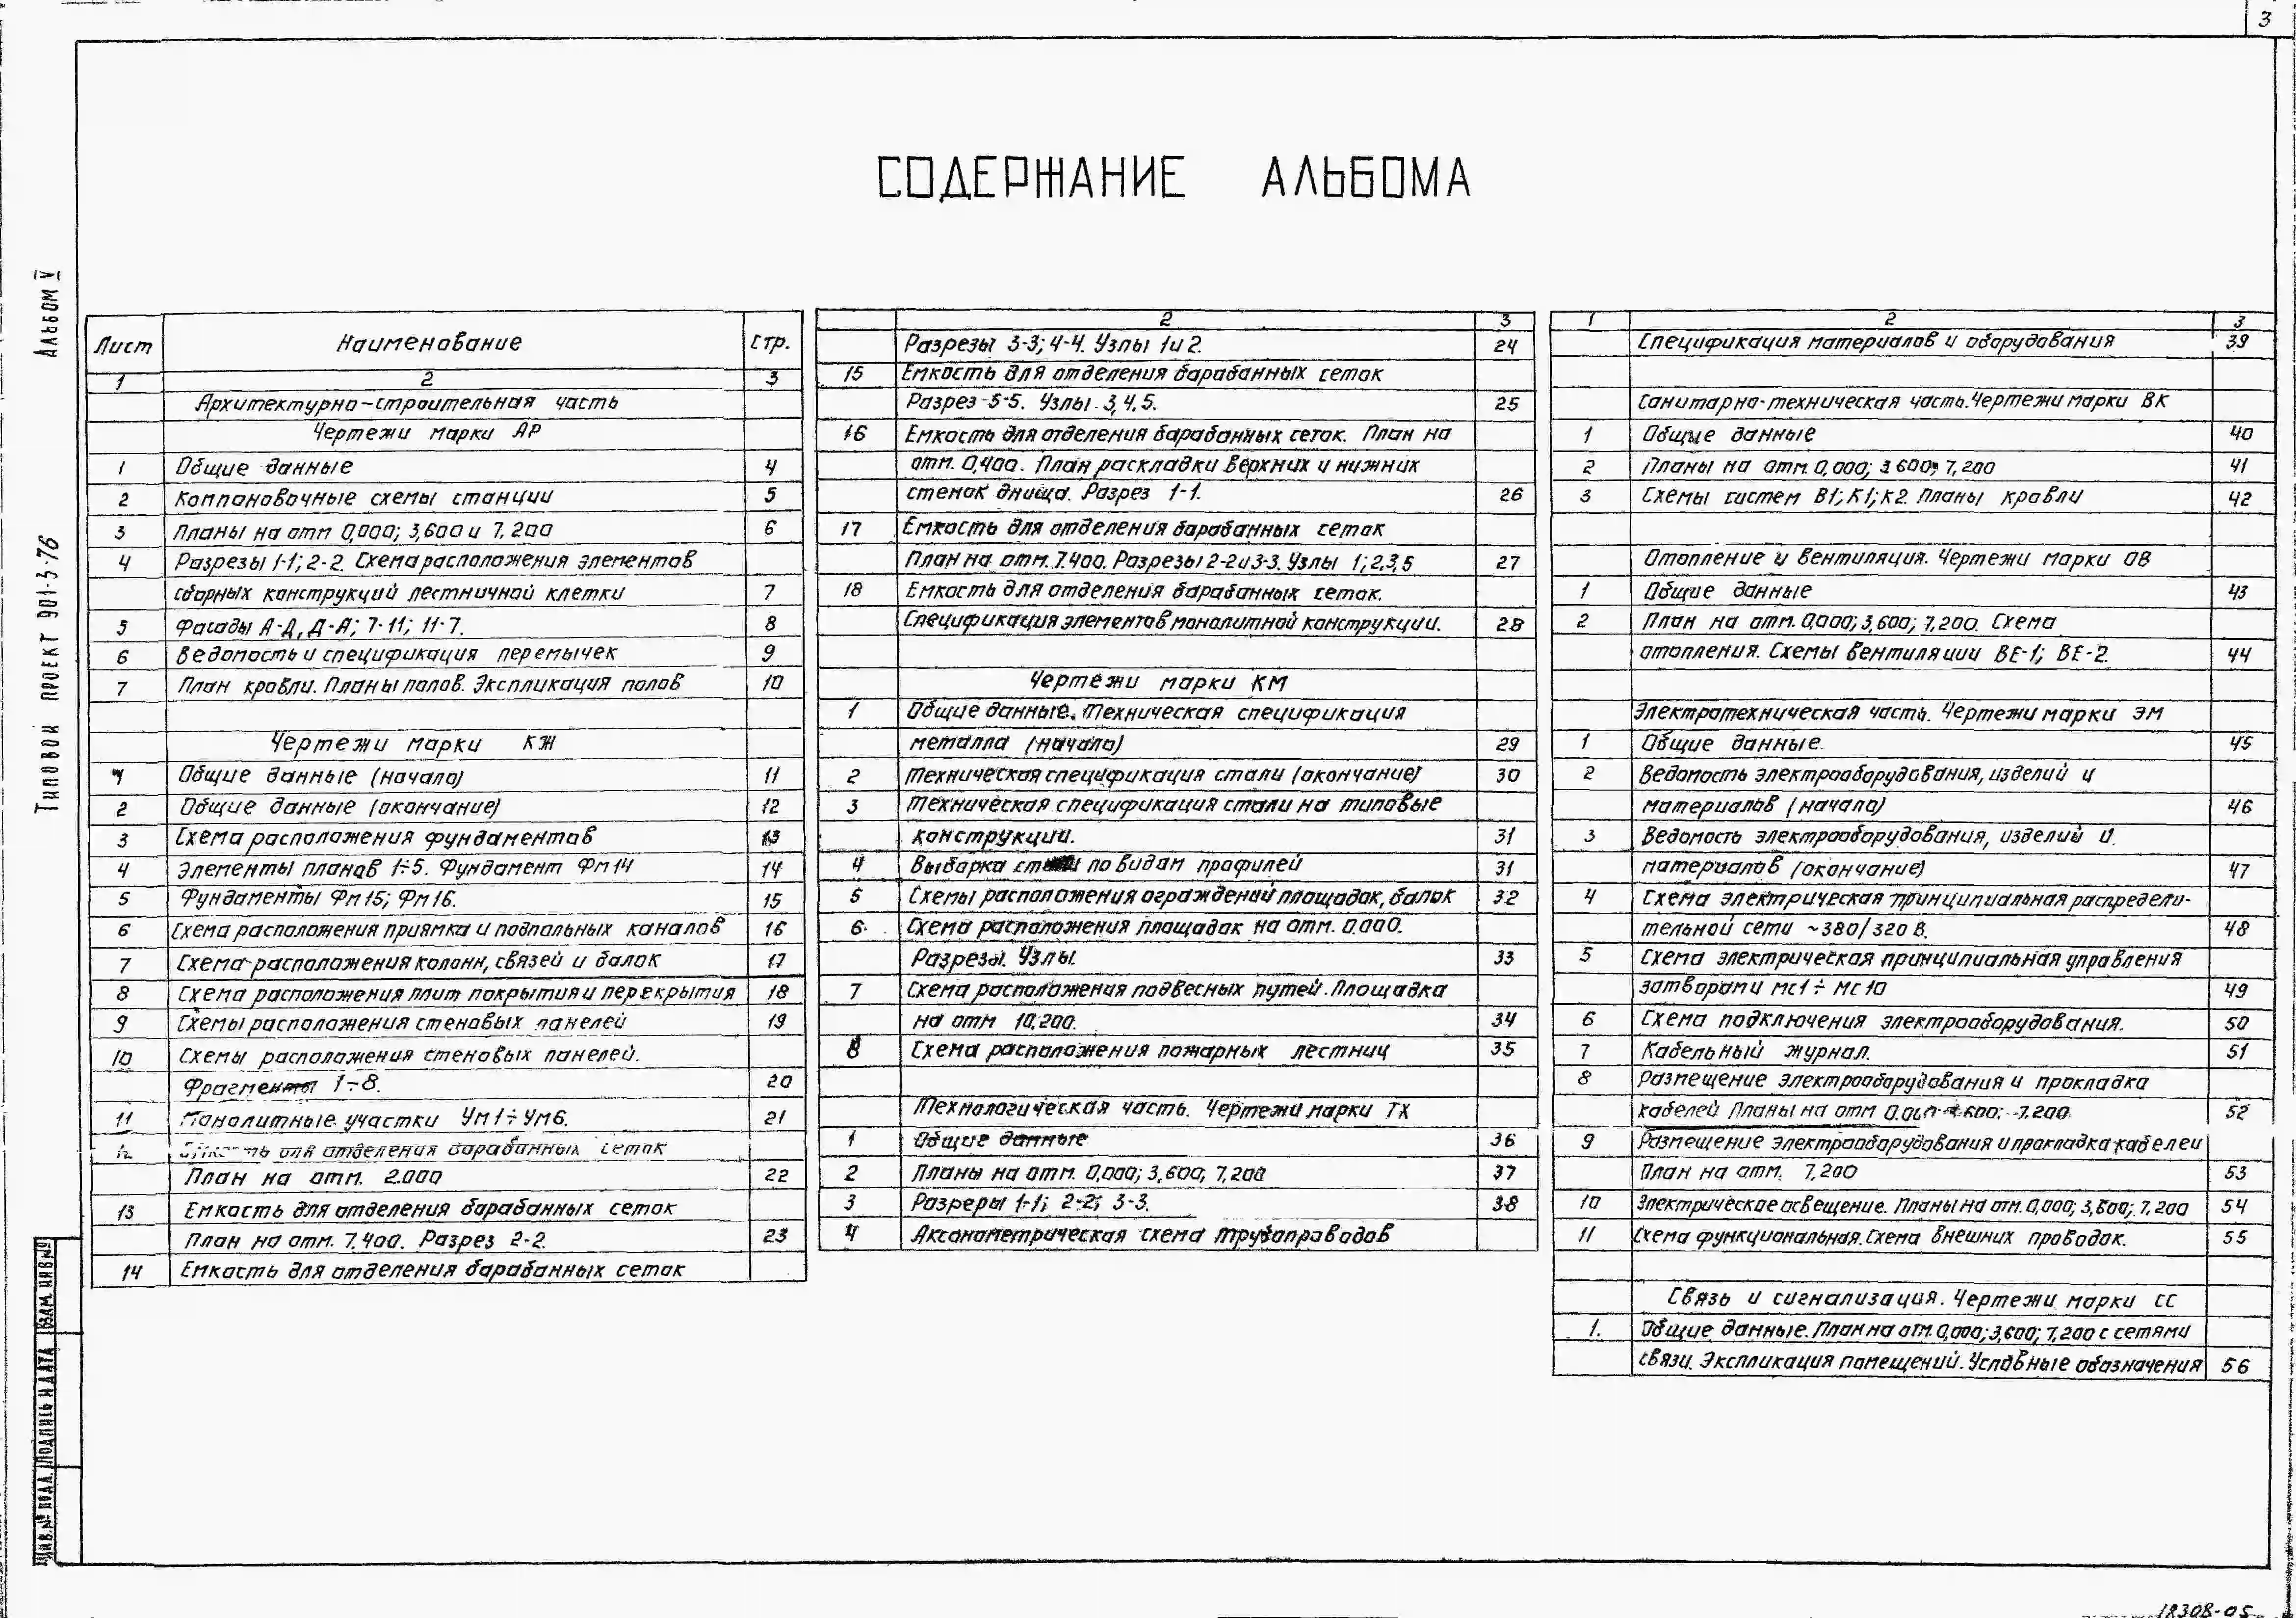 3
СОДЕРЖАНИЕ АЛЬБОМА
Альбом V
Типовой проект 901-3-76
Лист Наименование Стр.
1 2 3
Архитектурно-строительная часть
Чертежи марки АР
1 Общие данные 4
2 Компановочные схемы станции 5
3 Планы на отм 0,000; 3,600 и 7,200 6
4 Разрезы 1-1; 2-2. Схема расположения элементов
сборных конструкций лестничной клетки 7
5 Фасады А-Д, Д-А; 7-11; 11-7. 8
6 Ведомость и спецификация перемычек 9
7 План кровли. Планы полов. Экспликация полов 10
Чертежи марки КЖ
1 Общие данные (начало) 11
2 Общие данные (окончание) 12
3 Схема расположения фундаментов 13
4 Элементы планов 1÷5. Фундамент Фм14 14
5 Фундаменты Фм15; Фм16. 15
6 Схема расположения приямка и подпольных каналов 16
7 Схема расположения колонн, связей и балок 17
8 Схема расположения плит покрытия и перекрытия 18
9 Схемы расположения стеновых панелей 19
10 Схемы расположения стеновых панелей.
Фрагменты 1÷8. 20
11 Монолитные участки Ум1÷Ум6. 21
12 Емкость для отделения барабанных сеток
План на отм. 2.000 22
13 Емкость для отделения барабанных сеток
План на отм. 7.400. Разрез 2-2. 23
14 Емкость для отделения барабанных сеток
2 3
Разрезы 3-3; 4-4. Узлы 1 и 2. 24
15 Емкость для отделения барабанных сеток
Разрез 5-5. Узлы 3, 4, 5. 25
16 Емкость для отделения барабанных сеток. План на
отм. 0,400. План раскладки верхних и нижних
стенок днища. Разрез 1-1. 26
17 Емкость для отделения барабанных сеток
План на отм. 7.400. Разрезы 2-2 и 3-3. Узлы 1; 2,3,5 27
18 Емкость для отделения барабанных сеток.
Спецификация элементов монолитной конструкции. 28
Чертежи марки КМ
1 Общие данные. Техническая спецификация
металла (начало) 29
2 Техническая спецификация стали (окончание) 30
3 Техническая спецификация стали на типовые
конструкции. 31
4 Выборка стали по видам профилей 31
5 Схемы расположения ограждений площадок, балок 32
6. Схема расположения площадок на отм. 0.000.
Разрезы. Узлы. 33
7 Схема расположения подвесных путей. Площадка
на отм 10,200. 34
8 Схема расположения пожарных лестниц 35
Технологическая часть. Чертежи марки ТХ
1 Общие данные 36
2 Планы на отм. 0,000; 3,600; 7,200 37
3 Разреры 1-1; 2-2; 3-3. 38
4 Аксонометрическая схема трубопроводов
1 2 3
Спецификация материалов и оборудования 39
Санитарно-техническая часть. Чертежи марки ВК
1 Общие данные 40
2 Планы на отм. 0,000; 3 600; 7,200 41
3 Схемы систем В1; К1; К2. Планы кровли 42
Отопление и вентиляция. Чертежи марки ОВ
1 Общие данные 43
2 План на отм. 0,000; 3,600; 7,200. Схема
отопления. Схемы вентиляции ВЕ-1; ВЕ-2. 44
Электротехническая часть. Чертежи марки ЭМ
1 Общие данные 45
2 Ведомость электрооборудования, изделий и
материалов (начало) 46
3 Ведомость электрооборудования, изделий и
материалов (окончание) 47
4 Схема электрическая принципиальная распредели-
тельной сети ~380/320 В. 48
5 Схема электрическая принципиальная управления
затворами МС1 ÷ МС10 49
6 Схема подключения электрооборудования. 50
7 Кабельный журнал. 51
8 Размещение электрооборудования и прокладка
кабелей Планы на отм 0.000 3.600; 7.200. 52
9 Размещение электрооборудования и прокладка кабелей
План на отм. 7,200 53
10 Электрическое освещение. Планы на отм. 0,000; 3,600; 7,200 54
11 Схема функциональная. Схема внешних проводок. 55
Связь и сигнализация. Чертежи марки СС
1. Общие данные. План на отм. 0,000; 3,600; 7,200 с сетями
связи. Экспликация помещений. Условные обозначения 56
Взам. инв.№
Подпись и дата
Инв.№ подл.
18308-05